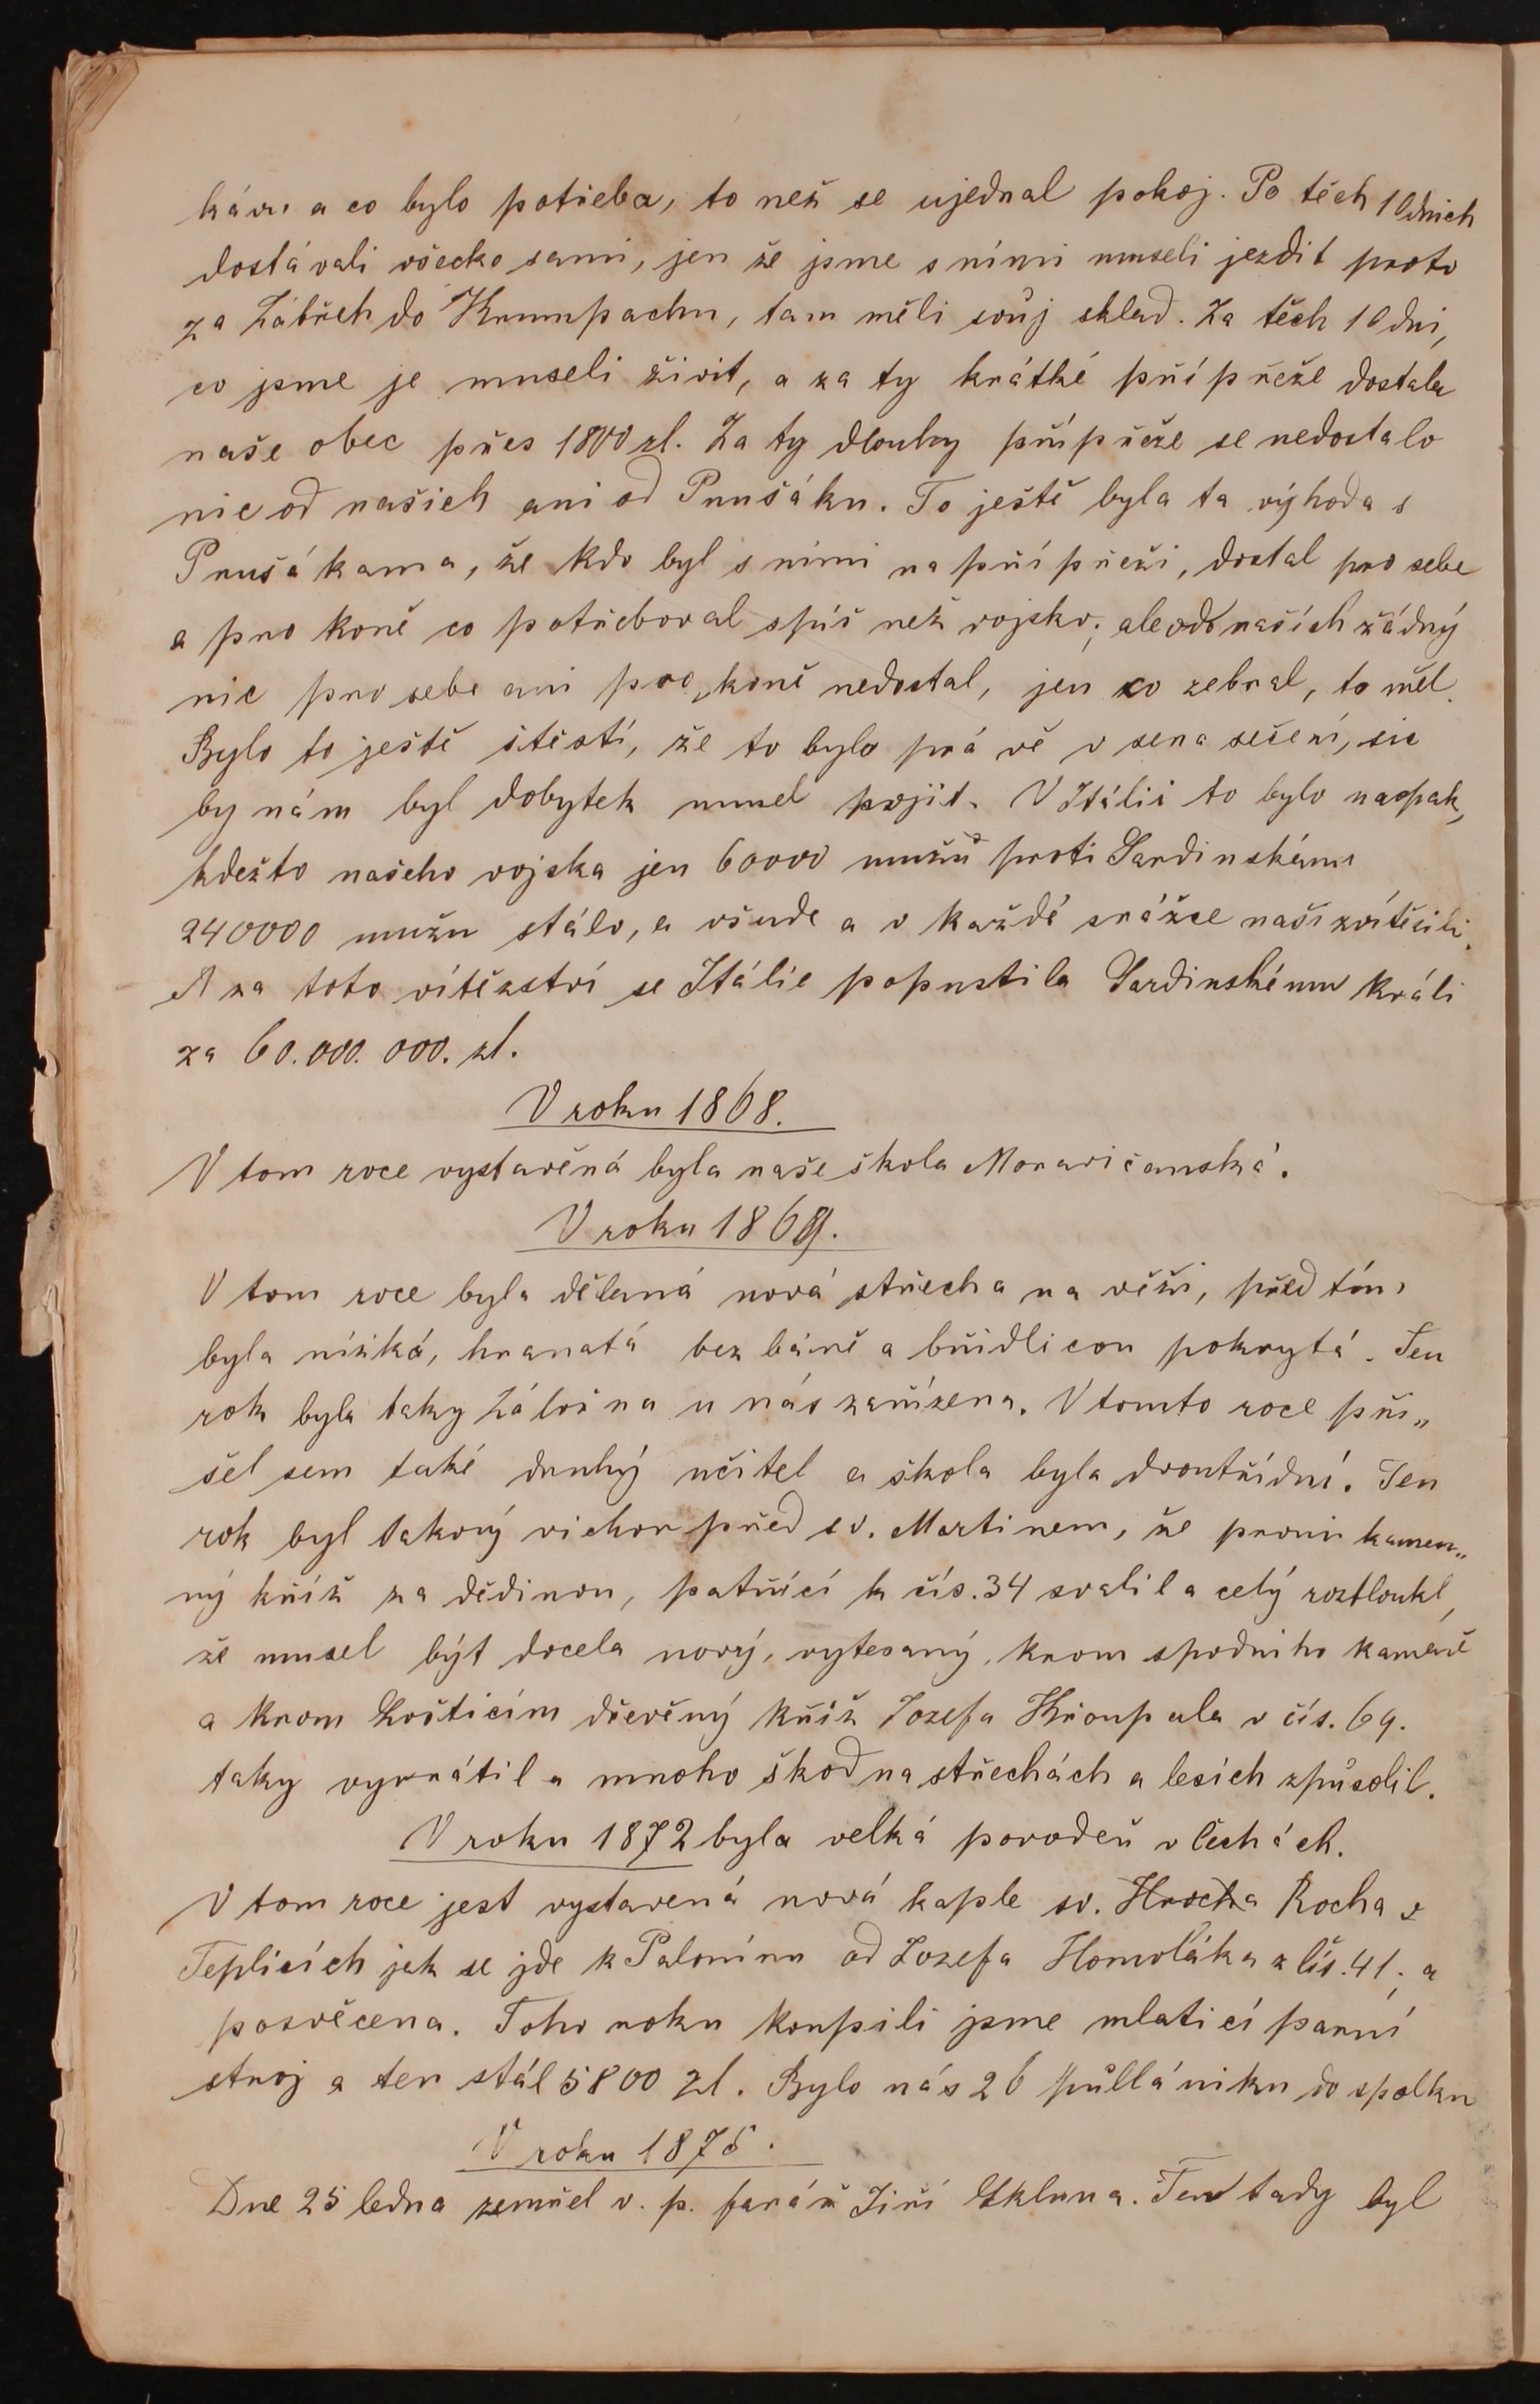 kávu a co bylo potřeba, to než se ujednal pokoj. Po těch 10 dnich
dostávali všecko sami, jen že jsme s nimi museli jezdit proto
za Zábřeh do Krumpachu, tam měli svůj sklad. Za těch 10 dni,
co jsme je museli živit, a za ty krátké přípřeže dostala
naše obec přes 1800 zl. Za ty dlouhy přípřeže se nedostalo
nic od našich ani od Prušáku. To ještě byla ta výhoda s
Prušákama, že kdo byl s nimi na přípřeži, dostal pro sebe
a pro koně co potřeboval spíš než vojsko; ale od našich žádný
nic pro sebe ani pro koně nedostal, jen co sebral, to měl.
Bylo to ještě štěstí, že to bylo právě v sena sečení, sic
by nám byl dobytek musel pojít. V Itálii to bylo naopak,
kdežto našeho vojska jen 60000 mužů proti Sardinskému
240000 mužu stálo, a všude a v každé srážce naši zvítěcili.
A za toto vítězství se Itálie popustila Sardinskému králi
za 60.000.000. zl.
V roku 1868.
V tom roce vystavěná byla naše škola Moravičanská.
V roku 1869.
V tom roce byla dělaná nová střecha na věži, před tím
byla nízká, hranatá bez báně a břidlicou pokrytá. Ten
rok byla taky Záložna u nás zařízena. V tomto roce při„
šel sem také druhý učitel a škola byla dvoutřídní. Ten
rok byl takový vichor před sv. Martinem, že první kamen„
ný kříž za dědinou, patřící k čís. 34 svalil a celý roztloukl,
že musel být docela nový, vytesaný, krom spodniho kameně
a krom Lošticím dřevěný kříž Jozefa Křoupala v čís. 69.
taky vyvrátil a mnoho škod na střechách a lesích způsobil.
V roku 1872 byla velká povodeň v Čechách.
V tom roce jest vystavená nová kaple sv. Hrocha Rocha v
Teplicích jak se jde k Palonínu od Jozefa Homoláka z čís. 41; a
posvěcena. Toho roku koupili jsme mlaticí parní
stroj a ten stál 5800 zl. Bylo nás 26 půllániku do spolku
V roku 1875.
Dne 25 ledna zemřel v. p. farář Jiří Skluna. Ten tady byl